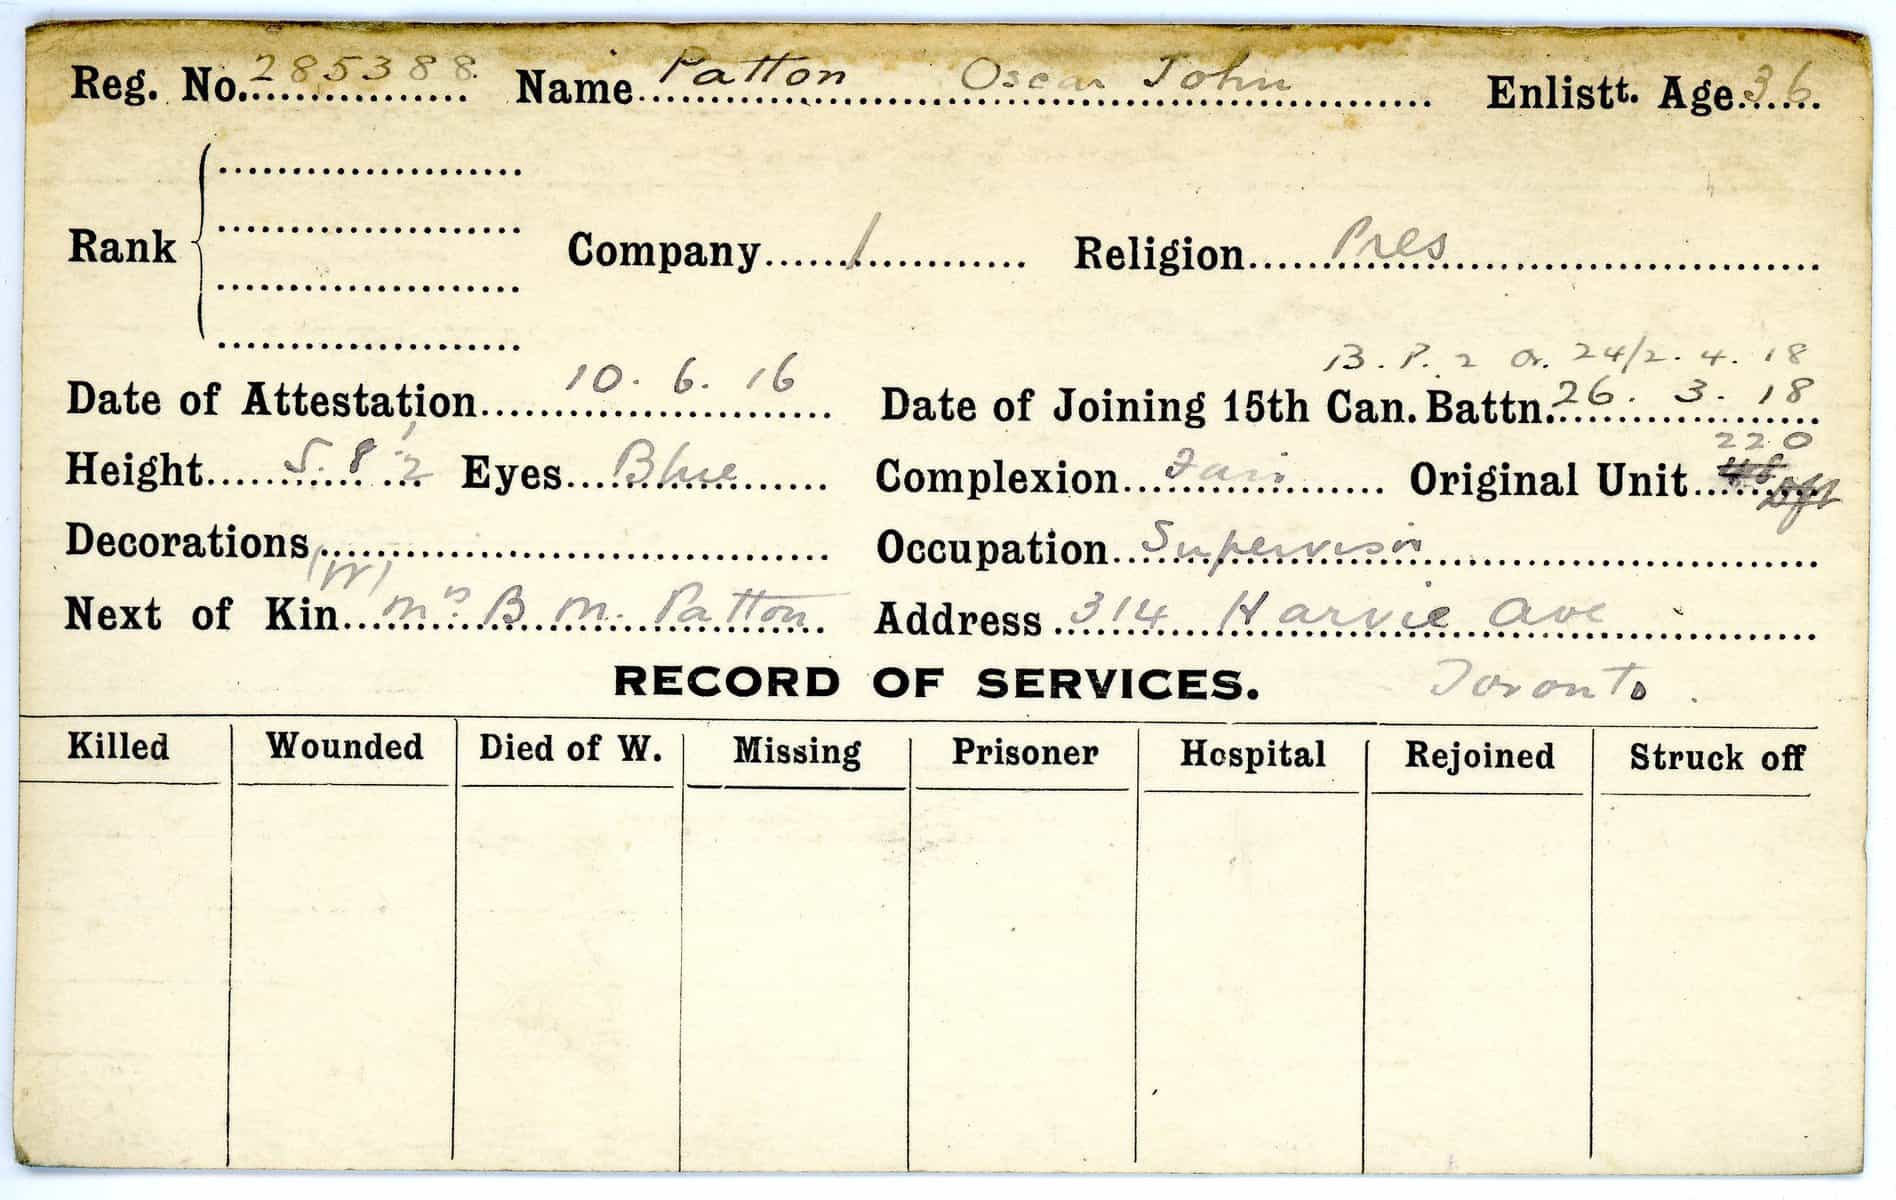 Reg. No. 285388. Name Patton Oscar John Enlistt. Age 36
Rank Company 1 Religion Pres
B. P. 2 Or. 24/2. 4. 18
Date of Attestation 10. 6. 16 Date of Joining 15th Can. Battn. 26. 3. 18
220
Height 5. 8 1/2 Eyes Blue Complexion Fair Original Unit Dft
Decorations Occupation Supervisor
(W)
Next of Kin Mrs B. M. Patton Address 314 Harvie Ave
RECORD OF SERVICES. Toronto.
Killed Wounded Died of W. Missing Prisoner Hospital Rejoined Struck off